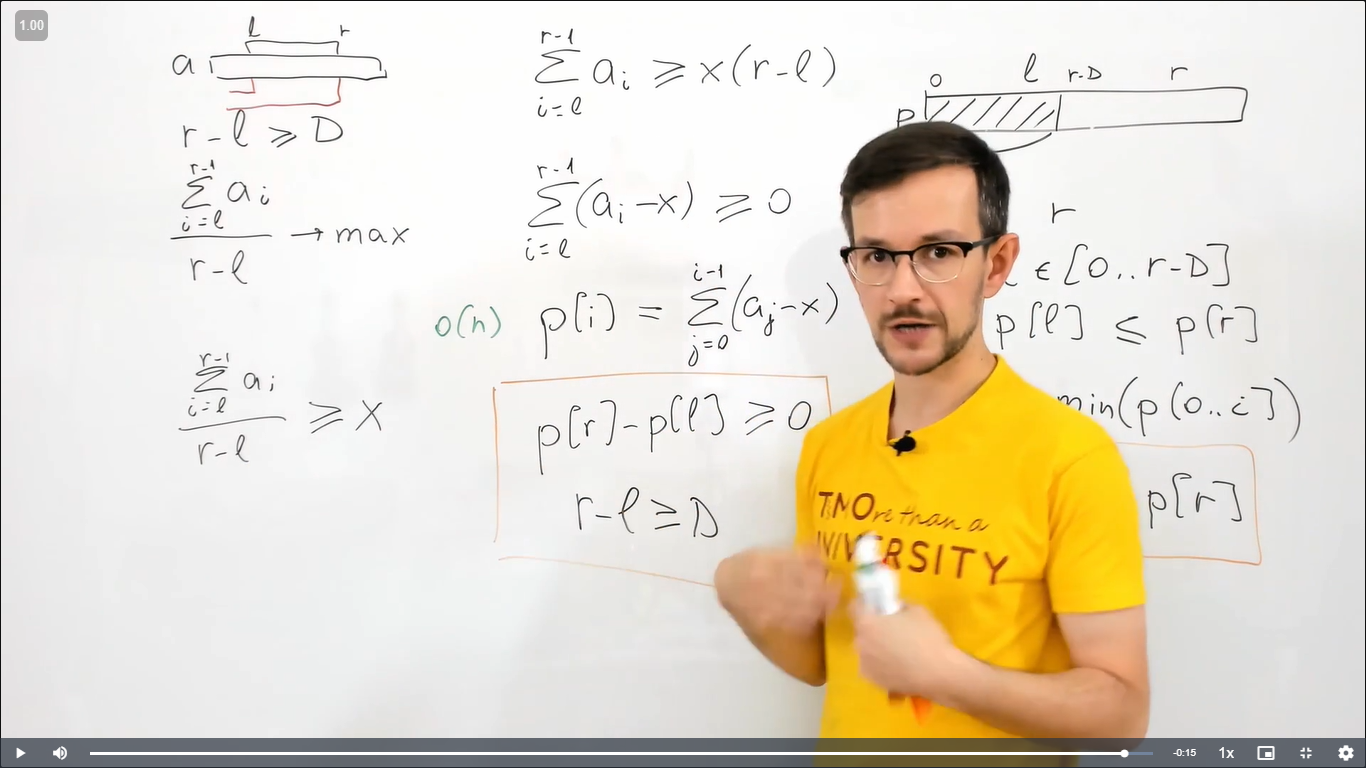 1.00
l r
a
r-l ≥ D
r-1
∑ a i
i=l
r-l
→ max
r-1
∑ a i
i=l
r-l
≥ x
r-1
∑ a i ≥ x(r-l)
i=l
r-1
∑ (a i -x) ≥ 0
i=l
i-1
o(n) p[i] = ∑ (a j -x)
j=0
p[r]-p[l] ≥ 0
r-l ≥ D
0 l r-D r
p
r
∈ [0..r-D]
p[l] ≤ p[r]
min(p[0..i])
p[r]
ITMOre than a
UNIVERSITY
-0:15 1x